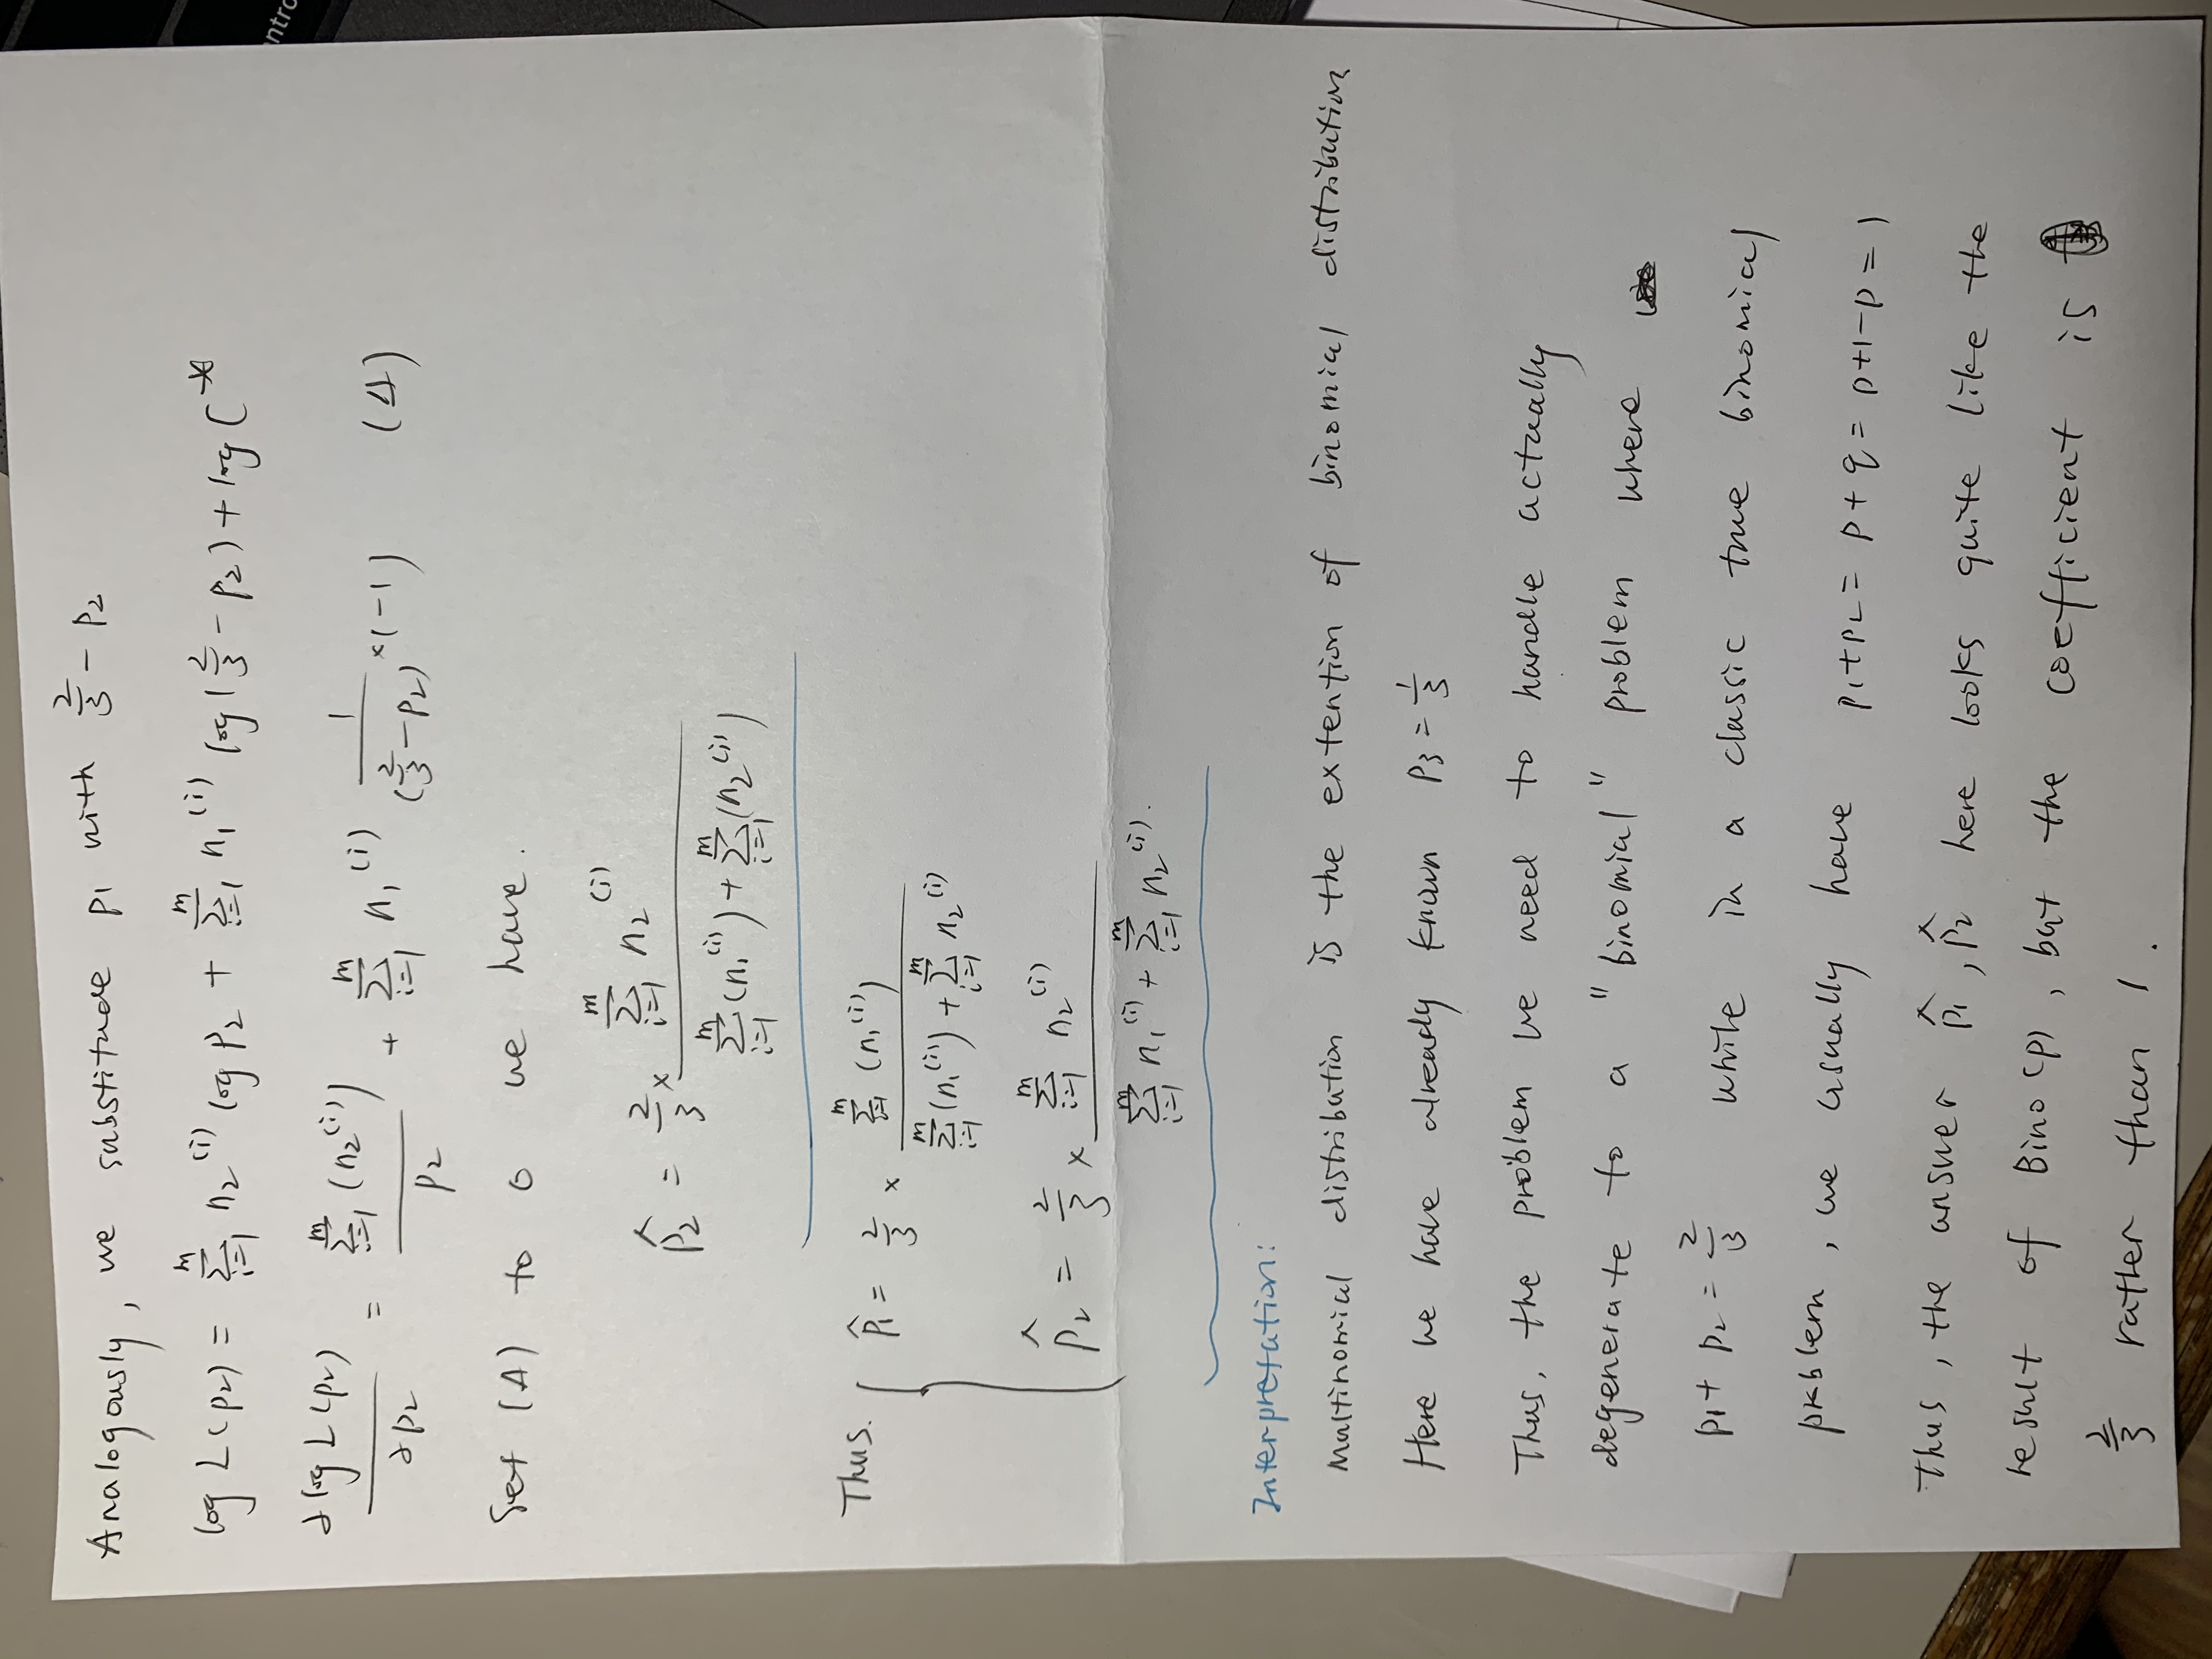 Analogously, we substitude p₁ with 2/3 - p₂
log L(p₂) = Σ_{i=1}^{m} n₂^{(i)} log p₂ + Σ_{i=1}^{m} n₁^{(i)} log(2/3 - p₂) + log C*
∂ log L(p₂) / ∂p₂ = Σ_{i=1}^{m} (n₂^{(i)}) / p₂ + Σ_{i=1}^{m} n₁^{(i)} 1/(2/3 - p₂) × (-1) (Δ)
Set (Δ) to 0 we have.
p̂₂ = 2/3 × Σ_{i=1}^{m} n₂^{(i)} / (Σ_{i=1}^{m} (n₁^{(i)}) + Σ_{i=1}^{m} (n₂^{(i)}))
Thus. { p̂₁ = 2/3 × Σ_{i=1}^{m} (n₁^{(i)}) / (Σ_{i=1}^{m} (n₁^{(i)}) + Σ_{i=1}^{m} n₂^{(i)})
p̂₂ = 2/3 × Σ_{i=1}^{m} n₂^{(i)} / (Σ_{i=1}^{m} n₁^{(i)} + Σ_{i=1}^{m} n₂^{(i)}).
Interpretation:
Multinomial distribution is the extention of binomial distribution
Here we have already known p₃ = 1/3
Thus, the problem we need to handle actually
degenerate to a "binomial" problem where
p₁ + p₂ = 2/3 while in a classic true binomial
problem, we usually have p₁+p₂ = p + q = p+1-p = 1
Thus, the answer p̂₁, p̂₂ here looks quite like the
result of Bino(p), but the coefficient is
2/3 rather than 1.
ntro